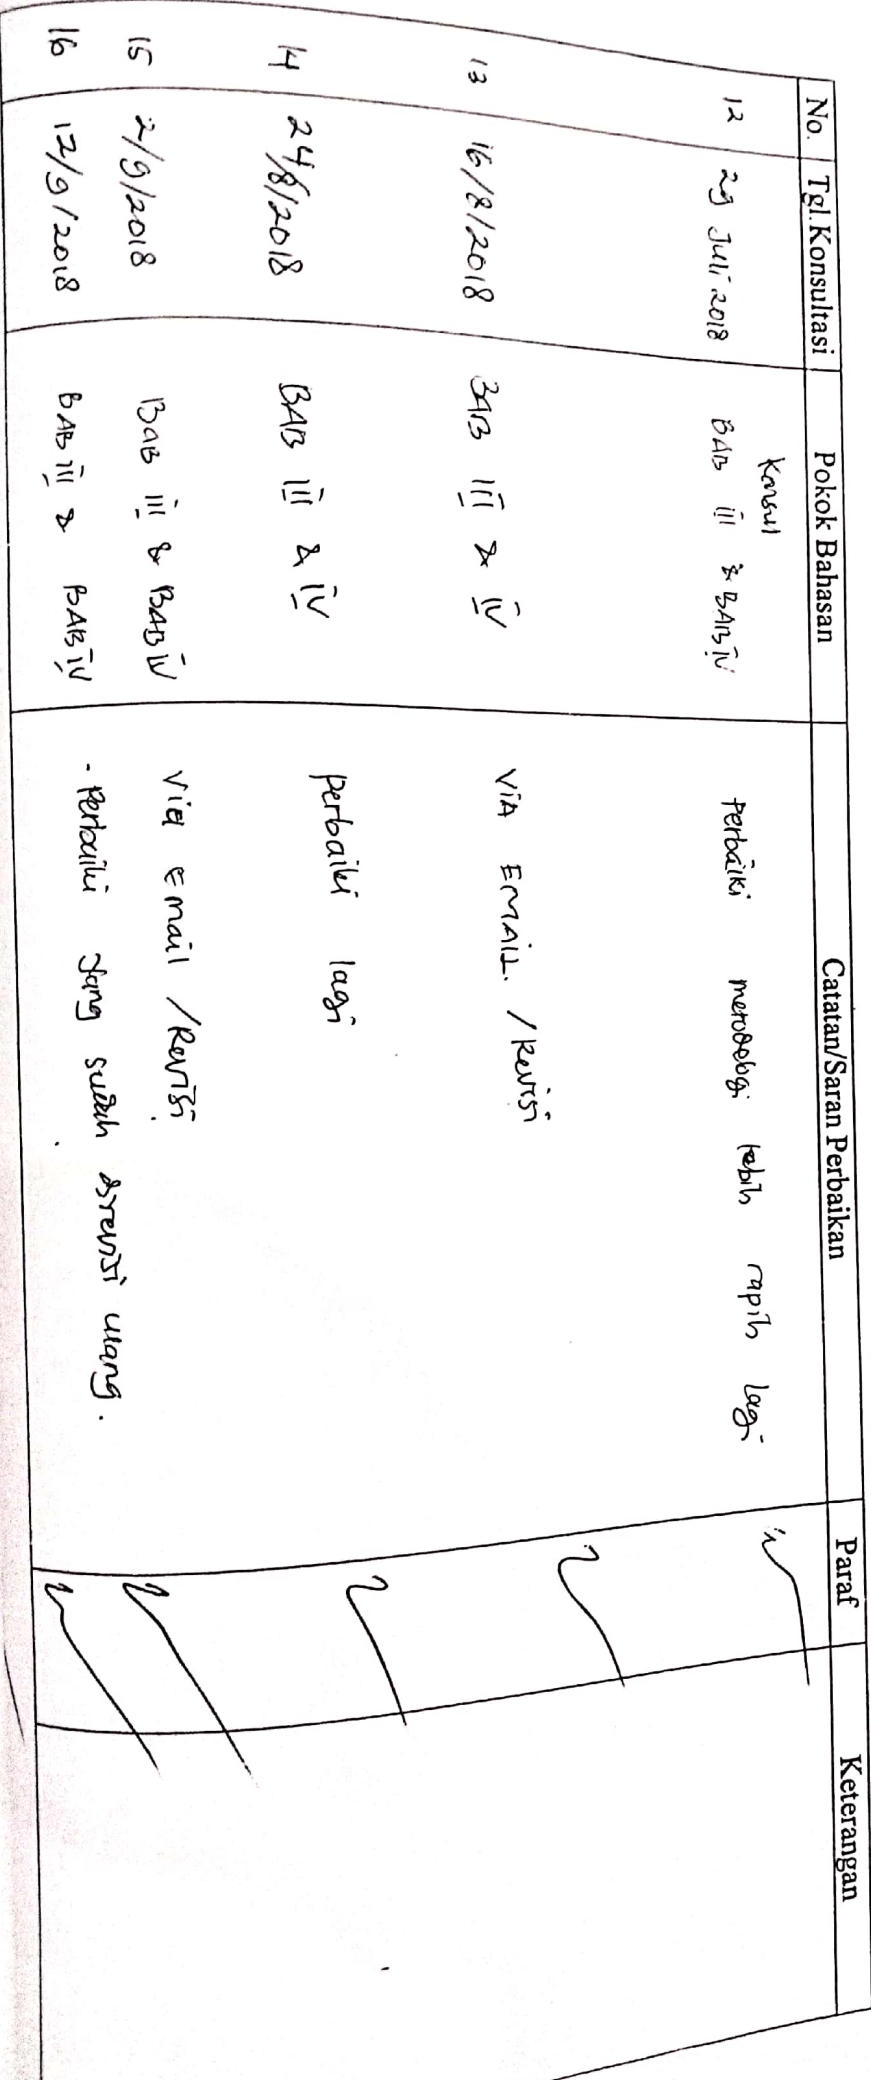 No. Tgl. Konsultasi Pokok Bahasan Catatan/Saran Perbaikan Paraf Keterangan
Konsul
12 29 Juli 2018 BAB III & BAB IV Perbaiki metodologi lebih rapih lagi
13 16/8/2018 BAB III & IV VIA EMAIL. / Revisi
14 24/8/2018 BAB III & IV Perbaiki lagi
15 2/9/2018 BAB III & BAB IV Via Email / Revisi
16 12/9/2018 BAB III & BAB IV - Perbaiki yang sudah direvisi ulang.